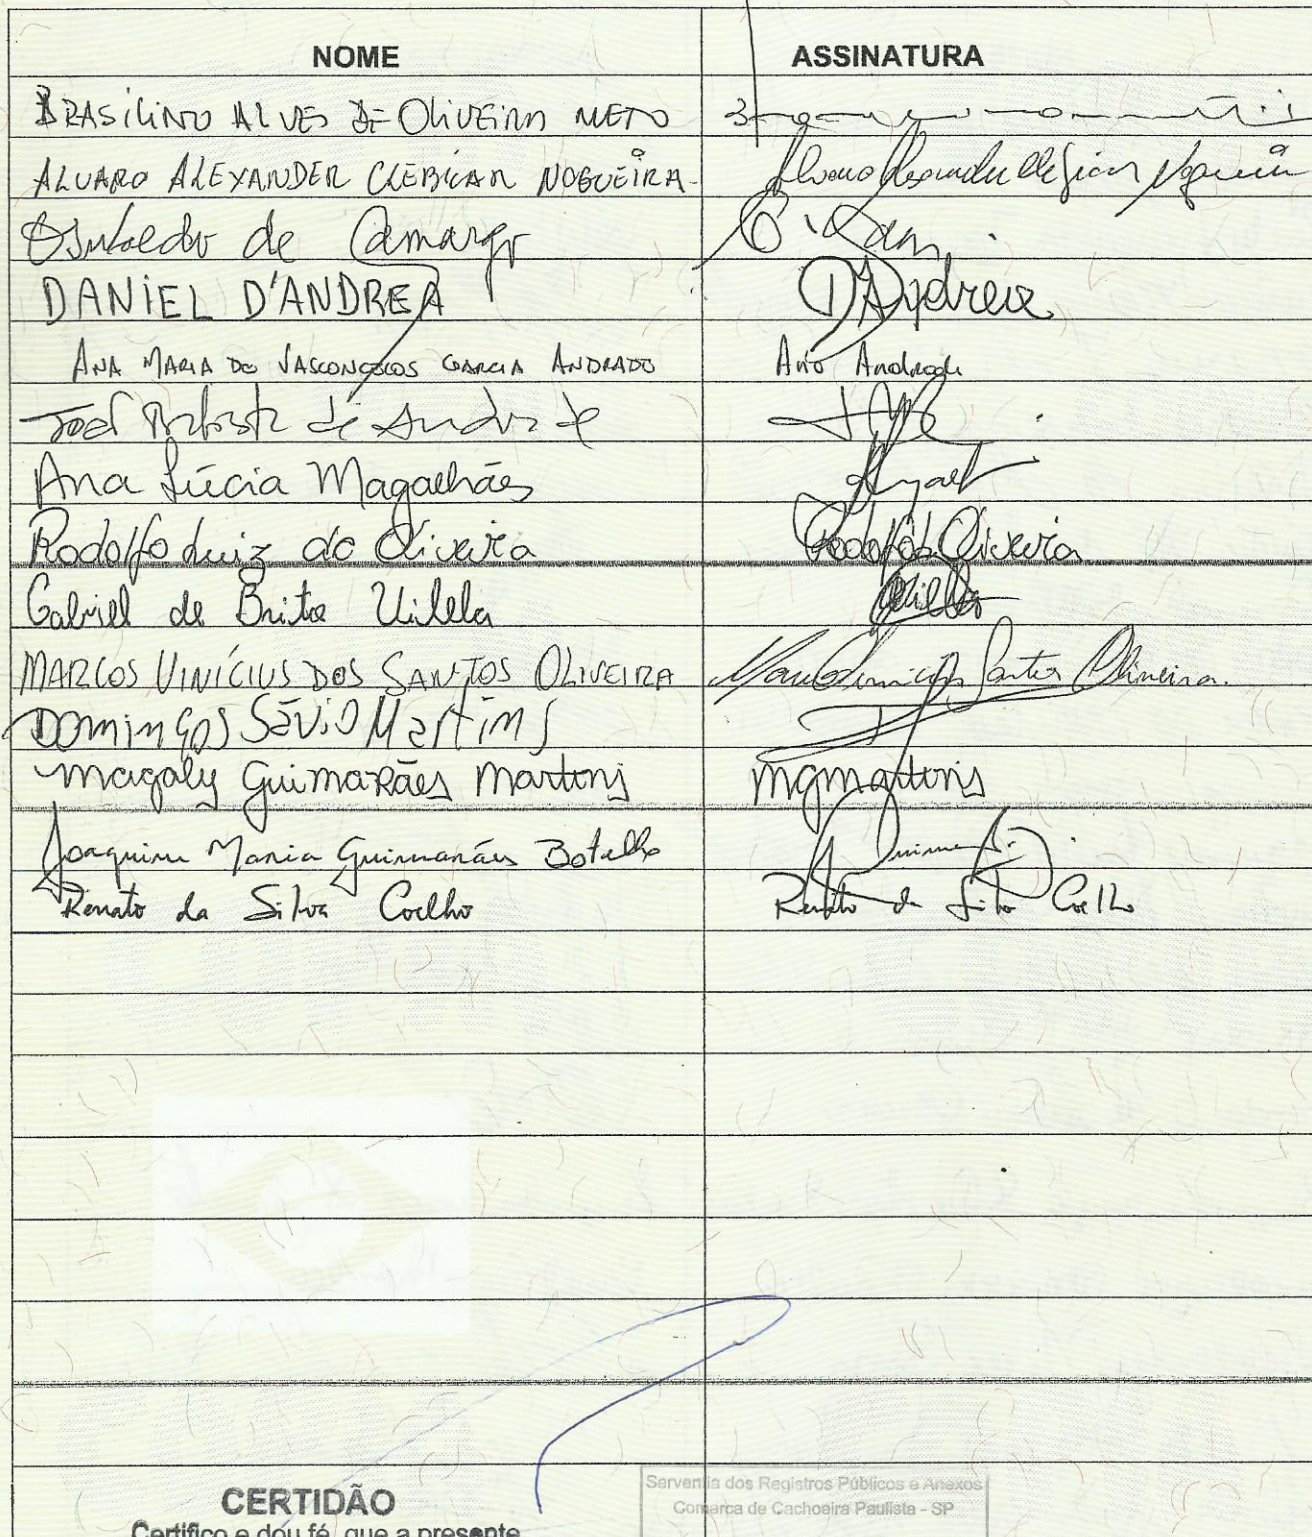 NOME ASSINATURA
BRASILINO ALVES DE OLIVEIRA NETO
ALVARO ALEXANDER CLERICAN NOGUEIRA
Oswaldo de Camargo
DANIEL D'ANDREA D'Andrea
ANA MARIA DE VASCONCELOS GARCIA ANDRADE Ana Andrade
Joel Batista de Andrade
Ana Lúcia Magalhães
Rodolfo Luiz de Oliveira Rodolfo Oliveira
Gabriel de Brito Vilela
MARCOS VINÍCIUS DOS SANTOS OLIVEIRA Santos Oliveira
DOMINGOS SÁVIO MARTINS
Magaly Guimarães Martins MGMartins
Joaquim Maria Guimarães Botelho
Renato da Silva Coelho Renato da Silva Coelho
CERTIDÃO Serventia dos Registros Públicos e Anexos
Comarca de Cachoeira Paulista - SP
Certifico e dou fé, que a presente